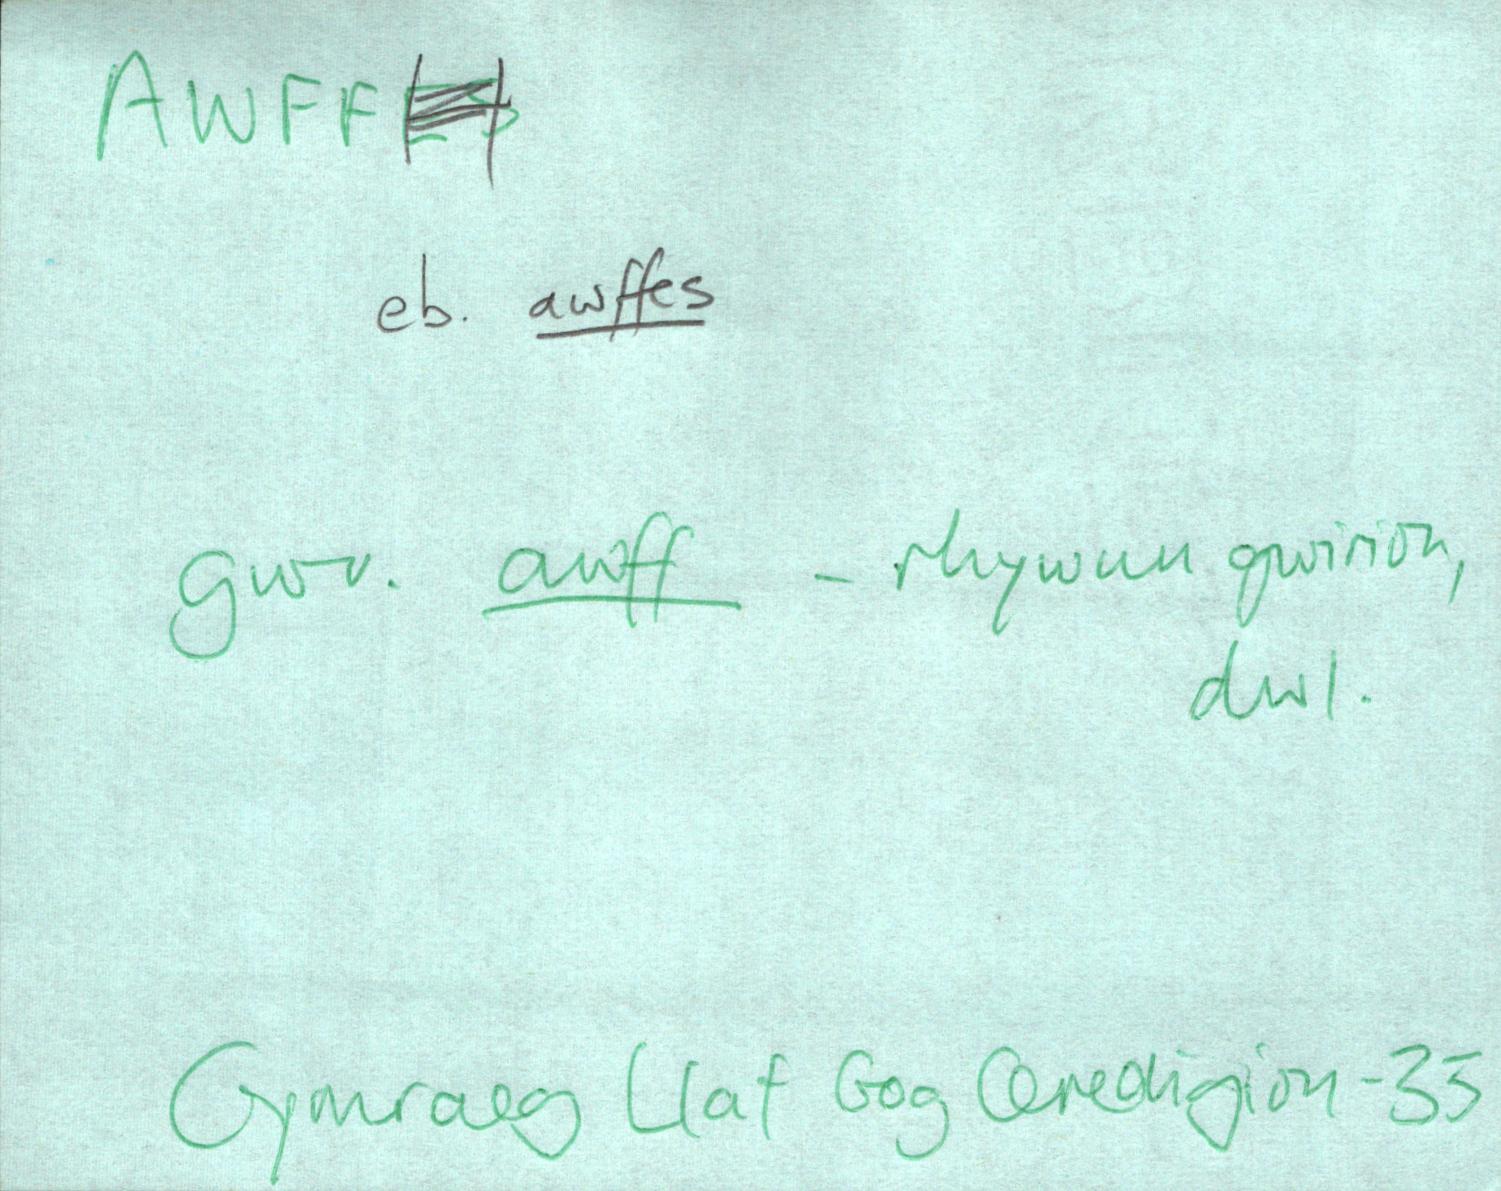 AWFF
eb. awffes
gwr. awff - rhywun gwirion,
dwl.
Cymraeg Llaf Gog Ceredigion - 35